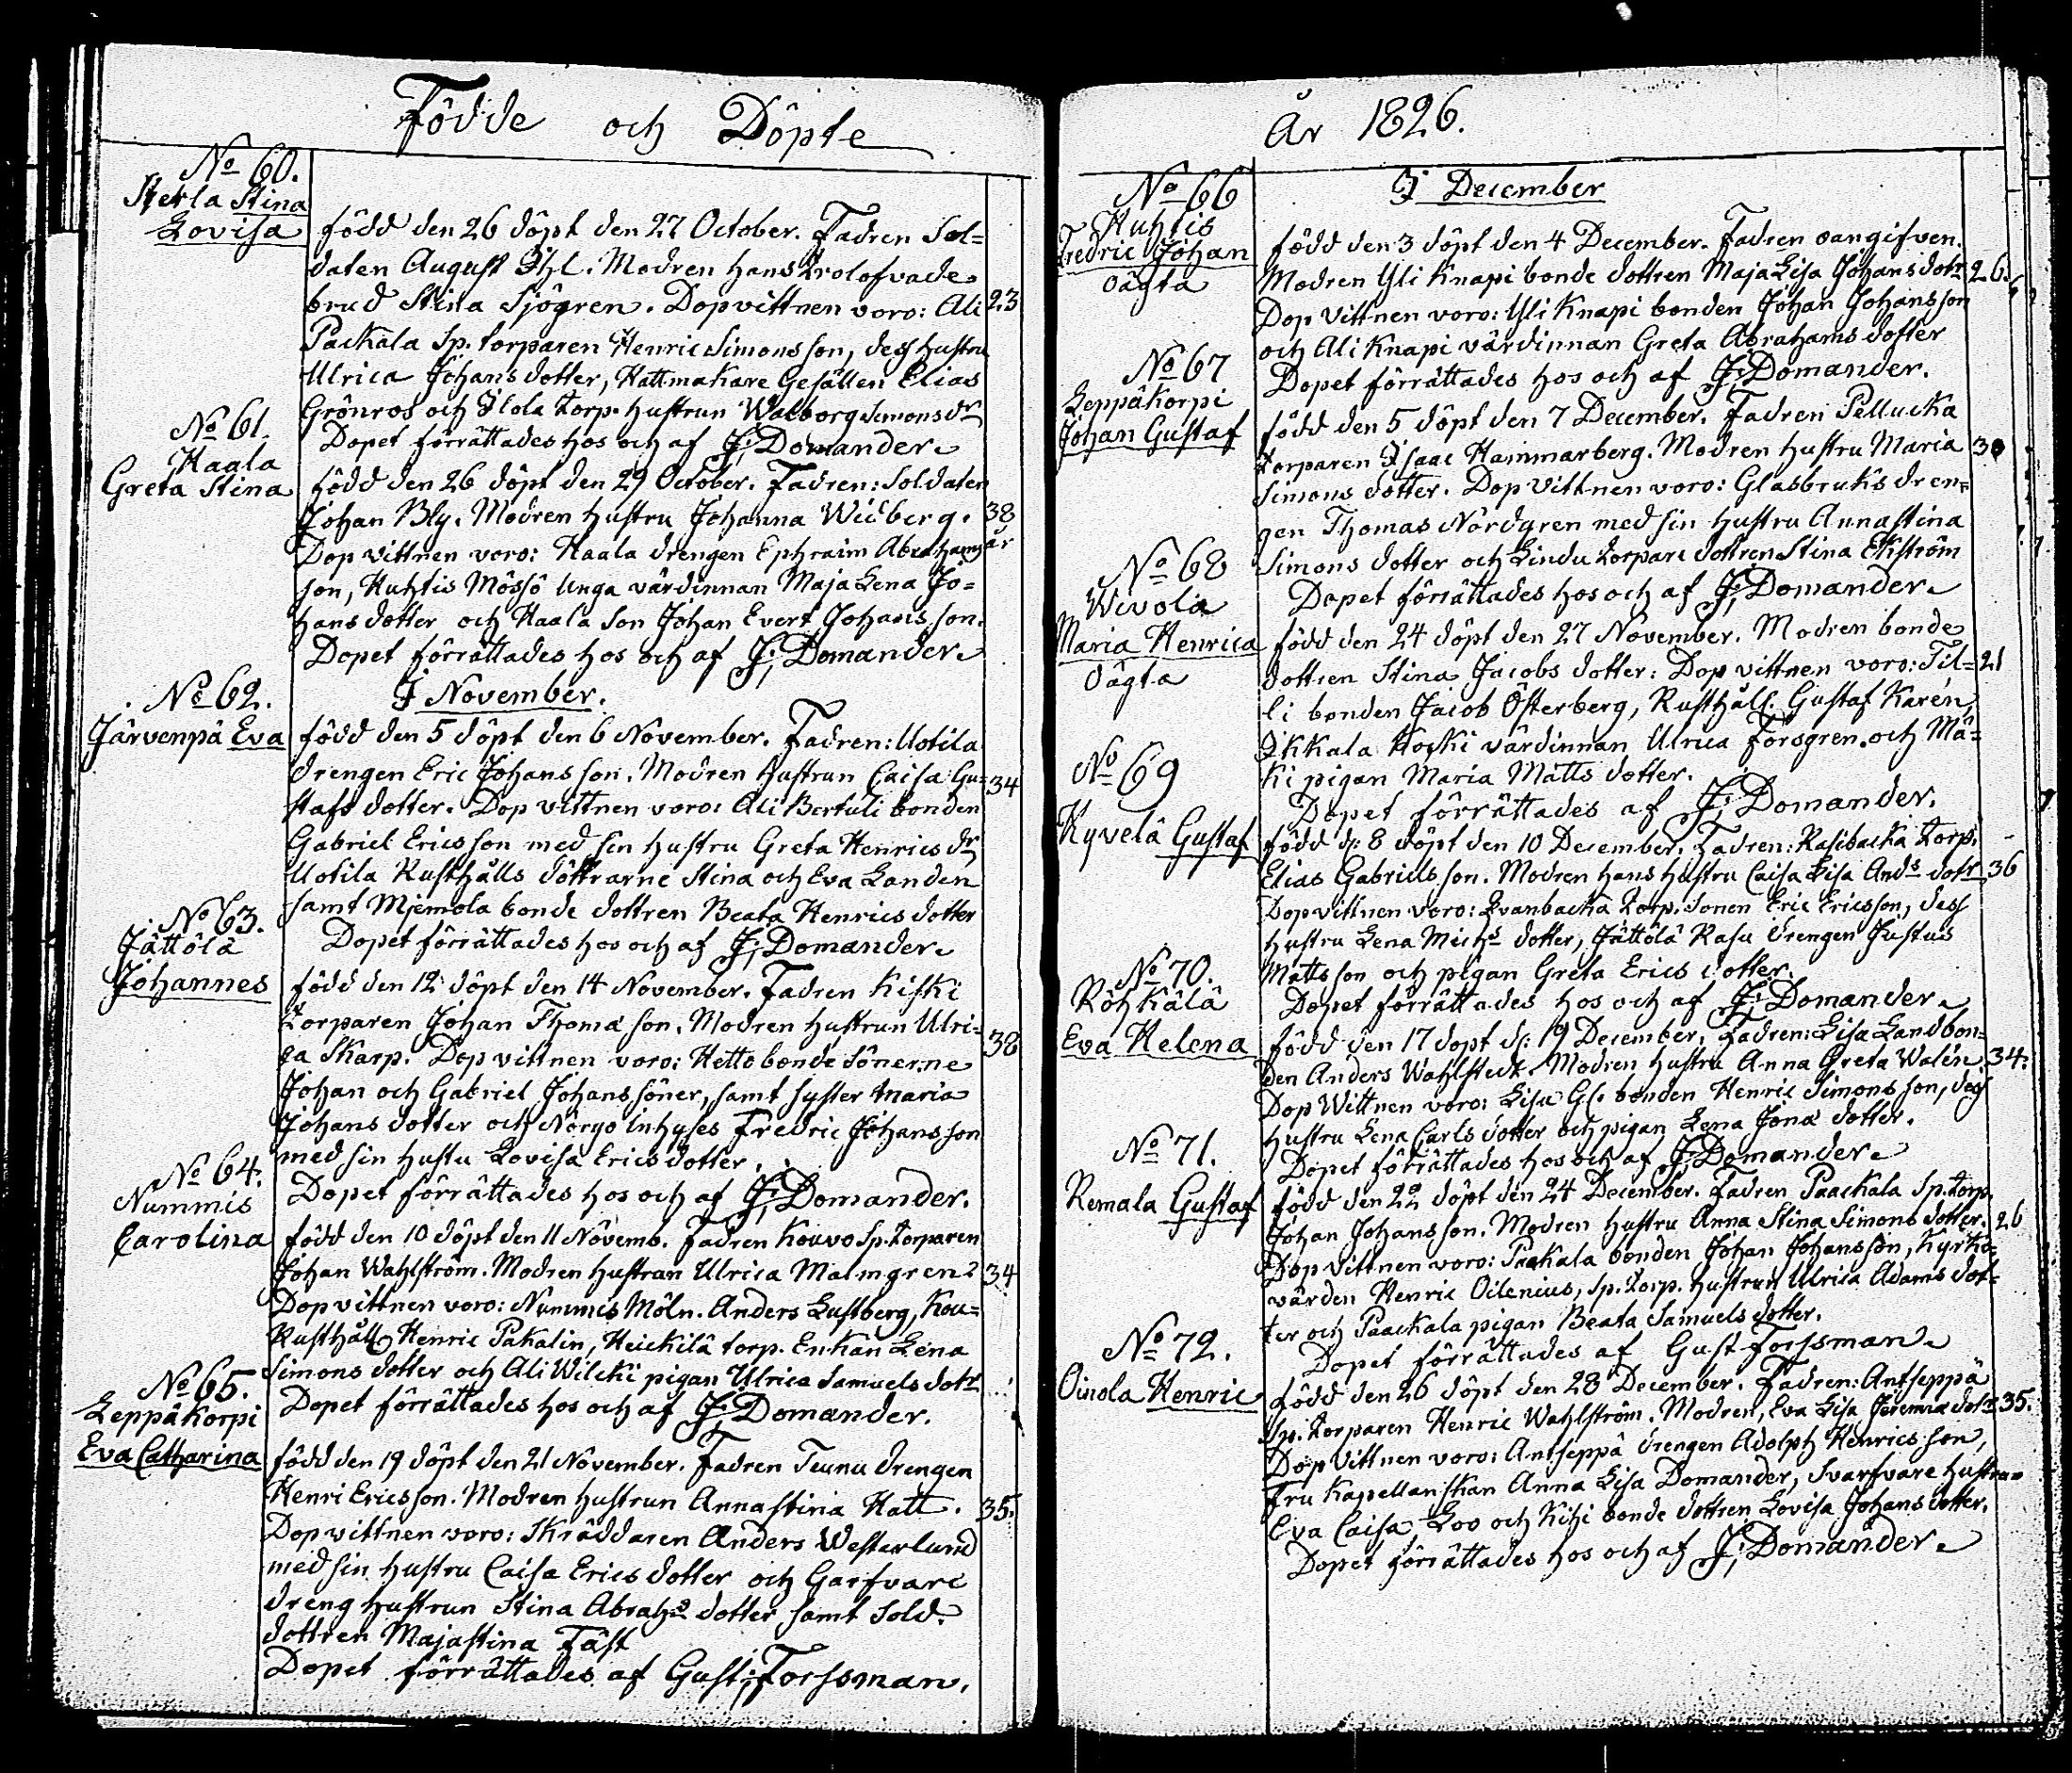 Födde och Döpte
No 60.
Sterla Stina
Lovisa
född den 26 döpt den 27 October. Fadren Sol=
daten August Ihl. Modren hans trolofvade
brud Stina Sjögren. Dopvittnen voro: Ali 23
Packala Sp. torparen Henric Simonsson, dess hustru
Ulrica Johansdotter, Hattmakare Gesällen Elias
Grönros och Ilola torp. hustrun Walborg Simonsdr
Dopet förrättades hos och af J. Domander
No 61.
Haala
Greta Stina
född den 26 döpt den 29 October. Fadren: Soldaten
Johan Bly. Modren hustru Johanna Widberg. 38
Dop vittnen voro: Haala drengen Ephraim Abrahams år
son, Huhtis Mössö unga värdinnan Maja Lena Jo=
hans dotter och Haala Son Johan Evert Johansson.
Dopet förrättades hos och af J. Domander
I November.
No 62.
Järvenpä Eva
född den 5 döpt den 6 November. Fadren: Uotila
drengen Eric Johansson. Modren hustrun Caisa Gu= 34
stafs dotter. Dop vittnen voro: Ali Bertuli bonden
Gabriel Ericsson med sin hustru Greta Henrics dr
Uotila Rusthålls döttrarne Stina och Eva Landen
samt Mjemola bonde dottren Beata Henrics dotter
Dopet förrättades hos och af J. Domander
No 63.
Jättölä
Johannes
född den 12 döpt den 14 November. Fadren Kiski
torparen Johan Thomä son. Modren hustrun Ulri= 38
ca Skarp. Dop vittnen voro: Hetto bonde sönerne
Johan och Gabriel Johans söner, samt syster Maria
Johans dotter och Nörgö inhyses Fredric Johansson
med sin hustu Lovisa Erics dotter.
Dopet förrättades hos och af J. Domander.
No 64.
Nummis
Carolina
född den 10 döpt den 11 Novemb. Fadren Kouvo Sp. torparen
Johan Wahlström. Modren hustrun Ulrica Malmgren 34
Dop vittnen voro: Nummis Möln. Anders Lustberg, Kou=
Rusthåll. Henric Pakalin, Heickilä torp. Enkan Lena
Simons dotter och Ali Wilcki pigan Ulrica Samuels dotr
Dopet förrättades hos och af J. Domander.
No 65.
Leppäkorpi
Eva Catharina
född den 19 döpt den 21 November. Fadren Teunu drengen
Henri Ericsson. Modren hustrun Annastina Hatt. 35.
Dop vittnen voro: Skräddaren Anders Westerlund
med sin hustru Caisa Erics dotter och Garfvare
dreng hustrun Stina Abrahs dotter samt Sold.
dottren Majastina Fäst
Dopet förrättades af Gust. Forssman.
År 1826.
I December
No 66
Huhtis
Fredric Johan
oägta
född den 3 döpt den 4 December. Fadren oangifven.
Modren Yli Knapi bonde dottren Maja Lisa Johans dotr 26.
Dop vittnen voro: Yli Knapi bonden Johan Johansson
och Ali Knapi värdinnan Greta Abrahams dotter
Dopet förrättades hos och af J. Domander.
No 67
Leppäkorpi
Johan Gustaf
född den 5 döpt den 7 December. Fadren Pellucka
torparen Isaac Hammarberg. Modren hustru Maria 30
Simons dotter. Dop vittnen voro: Glasbruks dren=
gen Thomas Nordgren med sin hustru Annastina
Simons dotter och Lindu torpare dottren Stina Ekström
Dopet förrättades hos och af J. Domander
No 68
Wivola
Maria Henrica
oägta
född den 24 döpt den 27 November. Modren bonde
dottren Stina Jacobs dotter. Dop vittnen voro: Til= 21
li bonden Jacob Österberg, Rusthåll. Gustaf Karén,
Ikkala Koski värdinnan Ulrica Forsgren och Mä=
ki pigan Maria Matts dotter.
Dopet förrättades af J. Domander.
No 69
Kyvelä Gustaf
född d: 8 döpt den 10 December. Fadren: Rasibacka torp.
Elias Gabriels son. Modren hans hustru Caisa Lisa Ands dotr 36
Dop vittnen voro: Qvanbacka torp. sonen Eric Ericsson, dess
hustru Lena Michs dotter, Jättölä Rasu drengen Justus
Mattsson och pigan Greta Erics dotter.
Dopet förrättades hos och af J. Domander
No 70.
Röhkälä
Eva Helena
född den 17 döpt d: 19 December. Fadren: Lisa Landbon=
den Anders Wahlstedt. Modren hustru Anna Greta Walén. 34.
Dop Wittnen voro: Lisa Gl. bonden Henric Simons son, dess
hustru Lena Carls dotter och pigan Lena Jonä dotter.
Dopet förrättades hos och af J. Domander
No 71.
Remala Gustaf
född den 22 döpt den 24 December. Fadren Paackala Sp. torp.
Johan Johansson. Modren hustru Anna Stina Simons dotter. 26
Dop vittnen voro: Paakala bonden Johan Johansson, Kyrko=
värden Henric Oilenius, Sp. torp. hustrun Ulrica Adams dot=
ter och Paackala pigan Beata Samuels dotter.
Dopet förrättades af Gust Forssman
No 72.
Oinola Henric
född den 26 döpt den 28 December. Fadren: Antseppä
Sp. torparen Henric Wahlström. Modren, Eva Lisa Jeremiä dotr 35.
Dop vittnen voro: Antseppä drengen Adolph Henrics son,
Fru Kapellanskan Anna Lisa Domander, Svarfvare hustrun
Eva Caisa Loo och Kihi bonde dottren Lovisa Johans dotter.
Dopet förrättades hos och af J. Domander